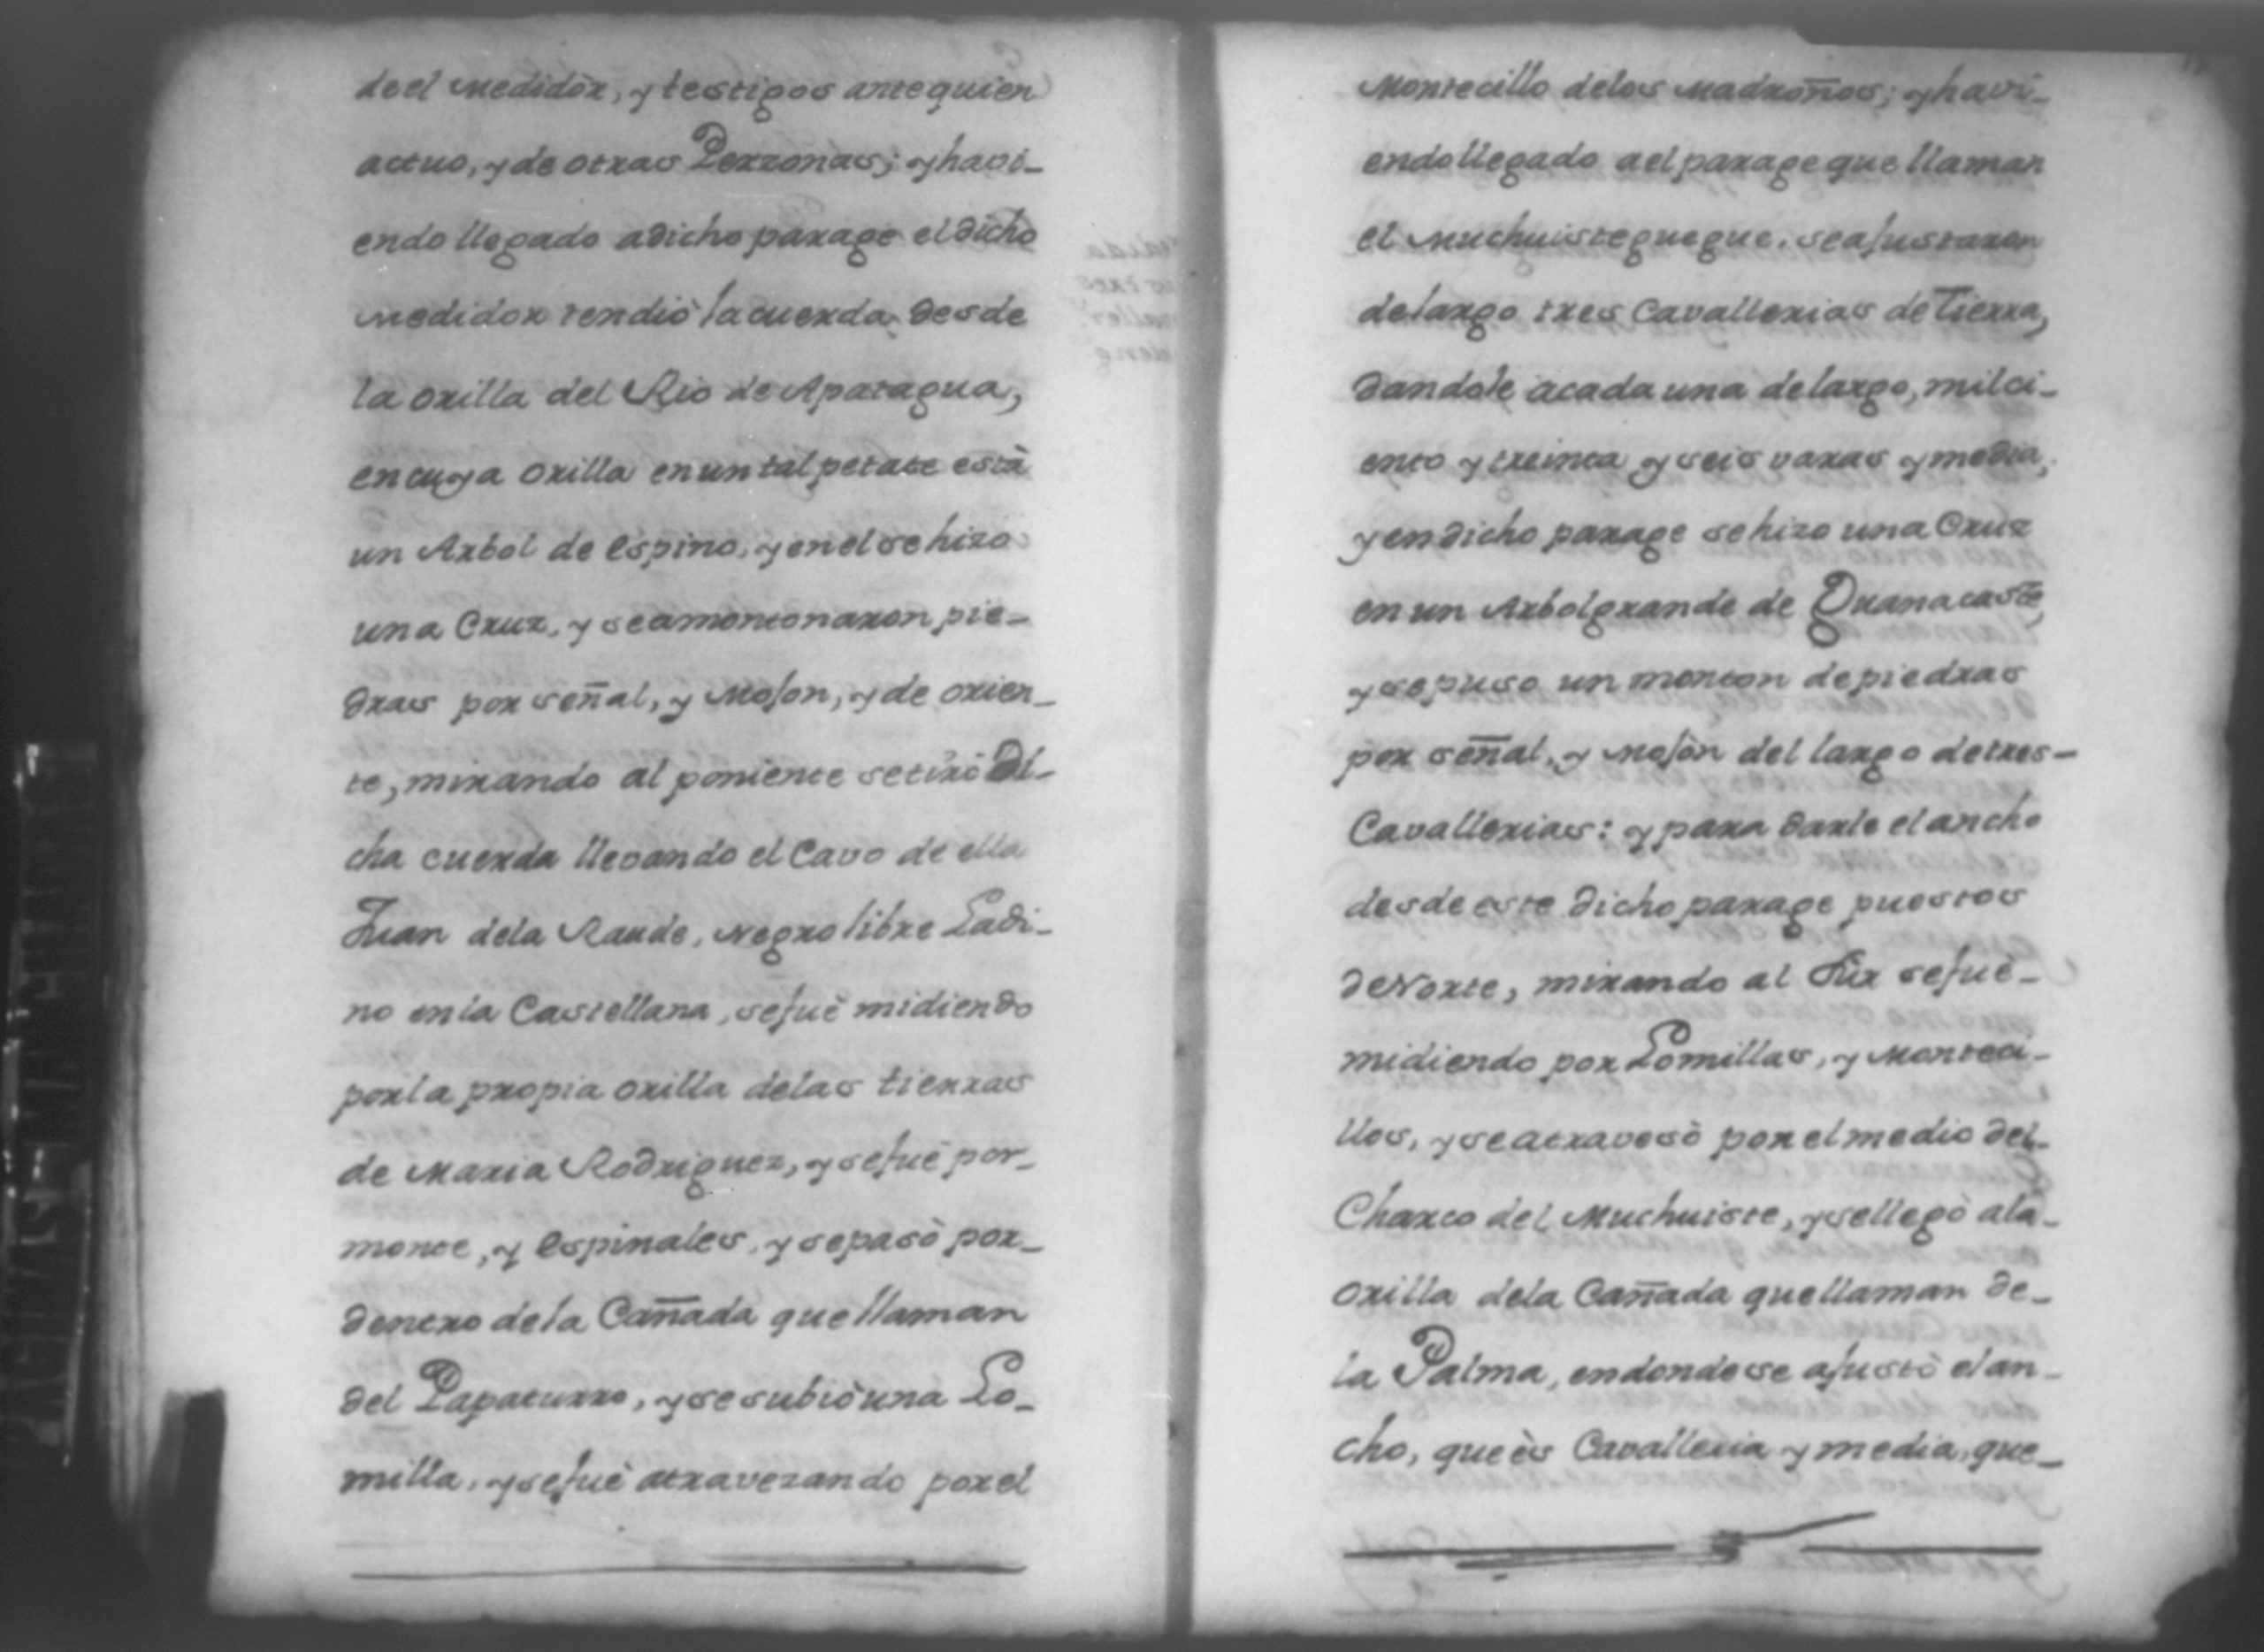 de el medidòr, y testigos ante quien
actuo, y de otras Perzonas; y havi-
endo llegado a dicho parage el dicho
medidor tendiò la cuerda desde
la orilla del Rio de Apatagua,
en cuya orilla en un talpetate està
un Arbol de espino, y en el se hizo
una Cruz, y se amontonaron pie-
dras por señal, y Mojon, y de orien-
te, mirando al poniente se tirò di-
cha cuerda llevando el Cavo de ella
Juan de la Raude, negro libre Ladi-
no en la Castellana, se fuè midiendo
por la propia orilla de las tierras
de Maria Rodriguez, y se fuè por-
monte, y espinales, y se pasò por-
dentro de la Cañada que llaman
del Papaturro, y se subiò una Lo-
milla, y se fuè atravezando por el
Montecillo de los Madroños; y havi-
endo llegado a el parage que llaman
el Muchuistequegue, se ajustaron
de largo tres Cavallerias de Tierra,
dandole a cada una de largo, mil ci-
ento y treinta y seis varas y media,
y en dicho parage se hizo una Cruz
en un Arbol grande de Guanacaste,
y se puso un monton de piedras
por señal, y Mojòn del largo de tres-
Cavallerias: y para darle el ancho
desde este dicho parage puestos
de Norte, mirando al Sur se fuè-
midiendo por Lomillas, y Monteci-
llos, y se atravesò por el medio del-
Charco del Muchuiste, y se llegò a la-
orilla de la Cañada que llaman de-
la Palma, en donde se ajustò el an-
cho, que ès Cavalleria y media, que-